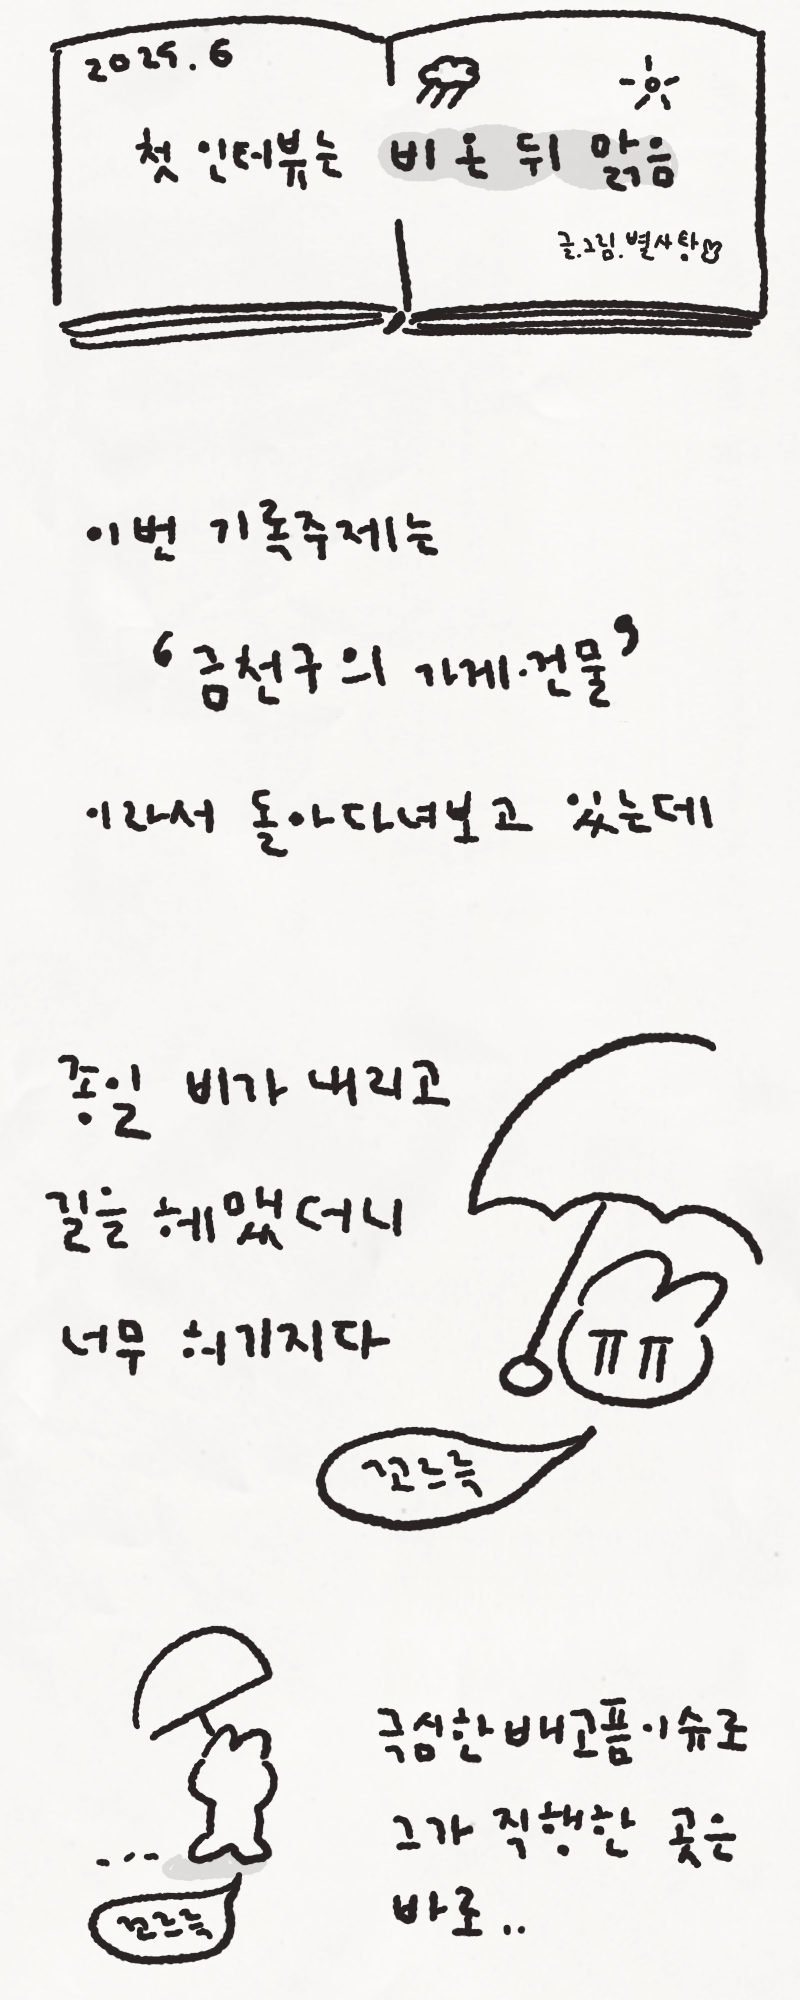 2025. 6
첫 인터뷰는 비 온 뒤 맑음
글.그림.별사탕
이번 기록주제는
'금천구의 가게·건물'
이라서 돌아다녀보고 있는데
종일 비가 내리고
길을 헤맸더니
너무 허기지다
ㅠㅠ
꼬르륵
극심한배고픔이슈로
그가 직행한 곳은
바로..
꼬르륵